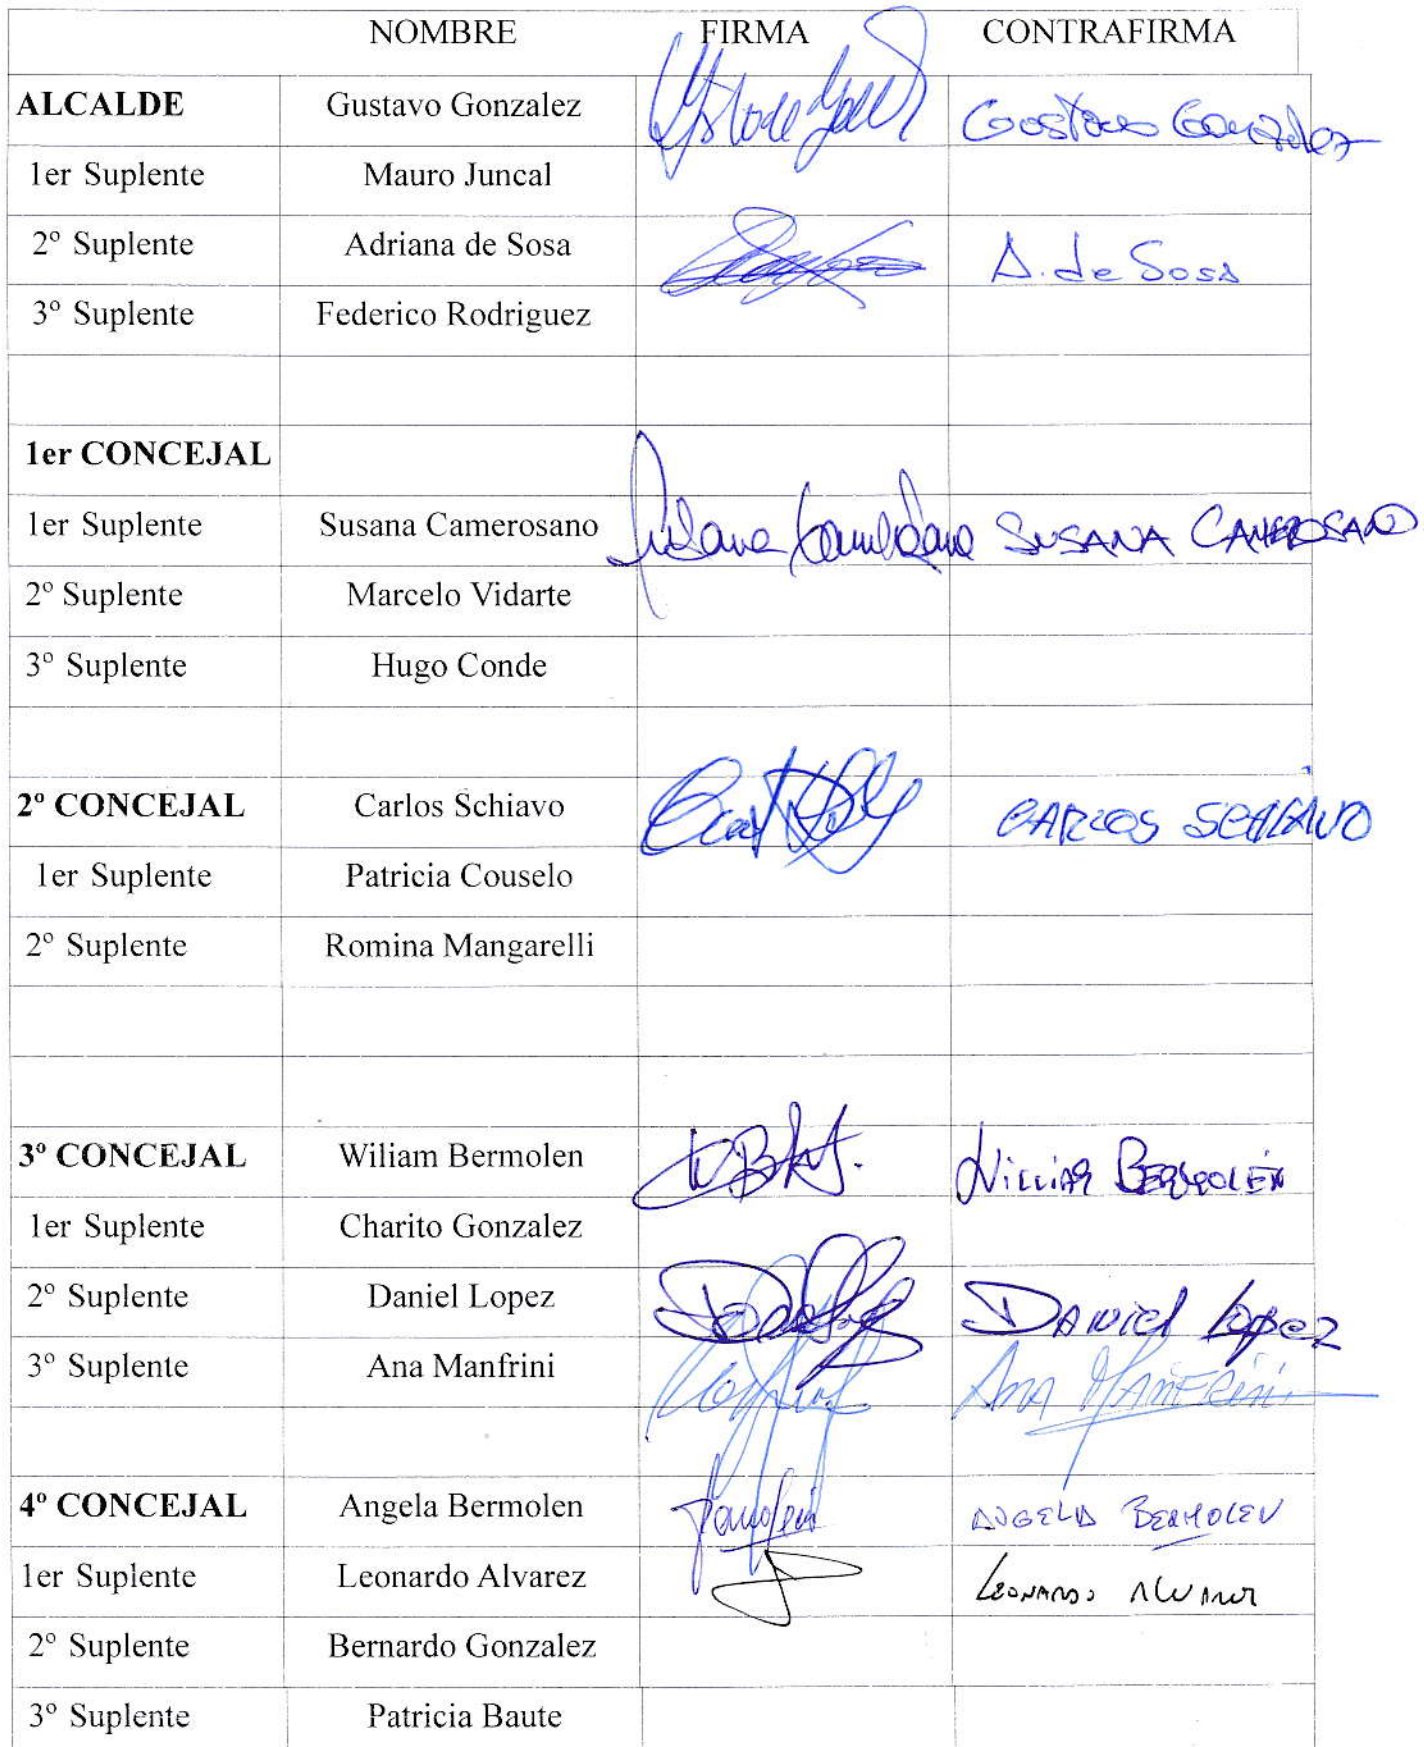 NOMBRE FIRMA CONTRAFIRMA
ALCALDE Gustavo Gonzalez Gustavo Gonzalez
1er Suplente Mauro Juncal
2º Suplente Adriana de Sosa A. de Sosa
3º Suplente Federico Rodriguez
1er CONCEJAL
1er Suplente Susana Camerosano Susana Camerosano SUSANA CAMEROSANO
2º Suplente Marcelo Vidarte
3º Suplente Hugo Conde
2º CONCEJAL Carlos Schiavo CARLOS SCHIAVO
1er Suplente Patricia Couselo
2º Suplente Romina Mangarelli
3º CONCEJAL Wiliam Bermolen William BERMOLEN
1er Suplente Charito Gonzalez
2º Suplente Daniel Lopez DANIEL Lopez
3º Suplente Ana Manfrini Ana MANFRINI
4º CONCEJAL Angela Bermolen ANGELA BERMOLEN
1er Suplente Leonardo Alvarez LEONARDO ALVAREZ
2º Suplente Bernardo Gonzalez
3º Suplente Patricia Baute